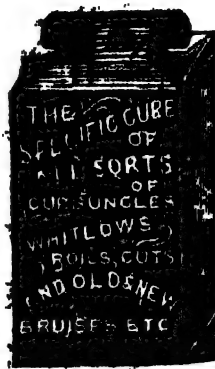 THE
SPECIFIC CURE
OF
ALL SORTS
OF
CURBUNCLES
WHITLOWS
BOILS, CUTS
AND OLD & NEW
BRUISES ETC